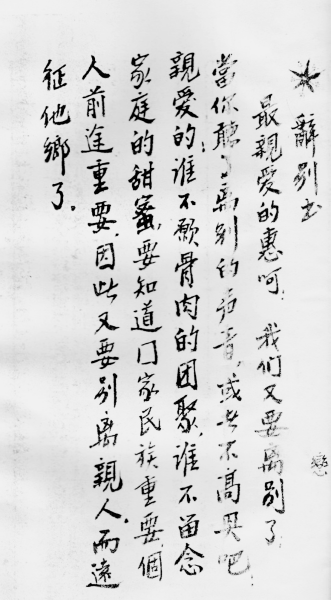 辭别书
最親爱的惠呵：我们又要离别了，
當你聽了离别的声音，或者不高兴吧！
親爱的：谁不願骨肉的团聚，谁不留念
家庭的甜蜜，要知道门家民族重要，個
人前途重要，因此又要别离親人，而遠
征他鄉了。
戀